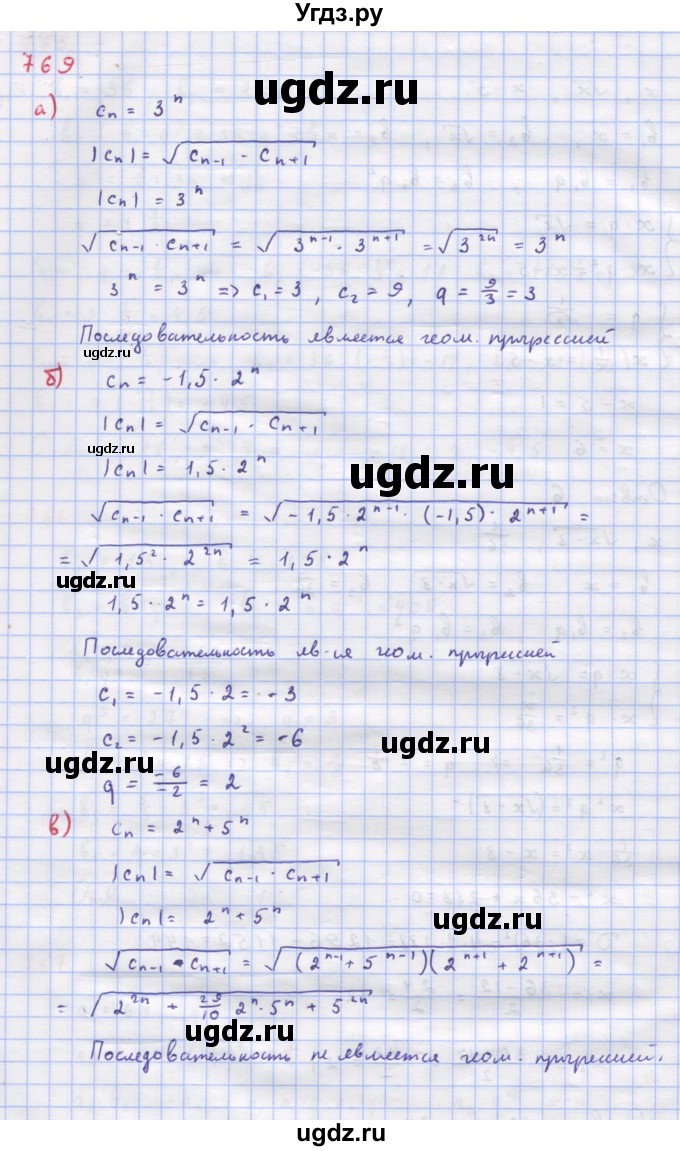 Угдз.ру
769
ugdz.ru
а) cₙ = 3ⁿ
|cₙ| = √(cₙ₋₁ · cₙ₊₁)
|cₙ| = 3ⁿ
√(cₙ₋₁ · cₙ₊₁) = √(3ⁿ⁻¹ · 3ⁿ⁺¹) = √(3²ⁿ) = 3ⁿ
3ⁿ = 3ⁿ => c₁ = 3, c₂ = 9, q = 9/3 = 3
Последовательность является геом. прогрессией
ugdz.ru
б) cₙ = -1,5 · 2ⁿ
|cₙ| = √(cₙ₋₁ · cₙ₊₁)
ugdz.ru
|cₙ| = 1,5 · 2ⁿ
ugdz.ru
√(cₙ₋₁ · cₙ₊₁) = √(-1,5 · 2ⁿ⁻¹ · (-1,5) · 2ⁿ⁺¹) =
= √(1,5² · 2²ⁿ) = 1,5 · 2ⁿ
ugdz.ru
1,5 · 2ⁿ = 1,5 · 2ⁿ
Последовательность яв-ся геом. прогрессией
c₁ = -1,5 · 2 = -3
c₂ = -1,5 · 2² = -6
ugdz.ru
ugdz.ru
q = -6/-2 = 2
в) cₙ = 2ⁿ + 5ⁿ
|cₙ| = √(cₙ₋₁ · cₙ₊₁)
|cₙ| = 2ⁿ + 5ⁿ
ugdz.ru
√(cₙ₋₁ · cₙ₊₁) = √((2ⁿ⁻¹ + 5ⁿ⁻¹)(2ⁿ⁺¹ + 2ⁿ⁺¹)) =
= √(2²ⁿ + 29/10 2ⁿ · 5ⁿ + 5²ⁿ)
ugdz.ru
Последовательность не является геом. прогрессией.
ugdz.ru